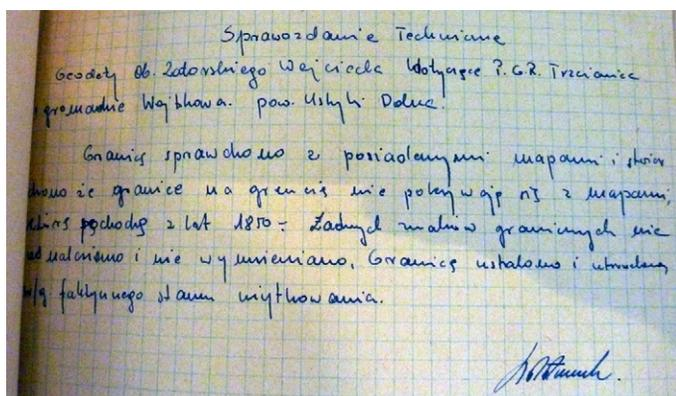 Sprawozdanie Techniczne
Geodety Ob. Zatorskiego Wojciecha dotyczące P.G.R. Trzcianiec
gromadzie Wojtkowa. pow. Ustrzyki Dolne.
Granicę sprawdzono z posiadanymi mapami i stwier
dzono że granice na gruncie nie pokrywają się z mapami,
które pochodzą z lat 1850 - Żadnych znaków granicznych nie
odnaleziono i nie wymieniano. Granicę ustalono i utrwalono
w/g faktycznego stanu użytkowania.